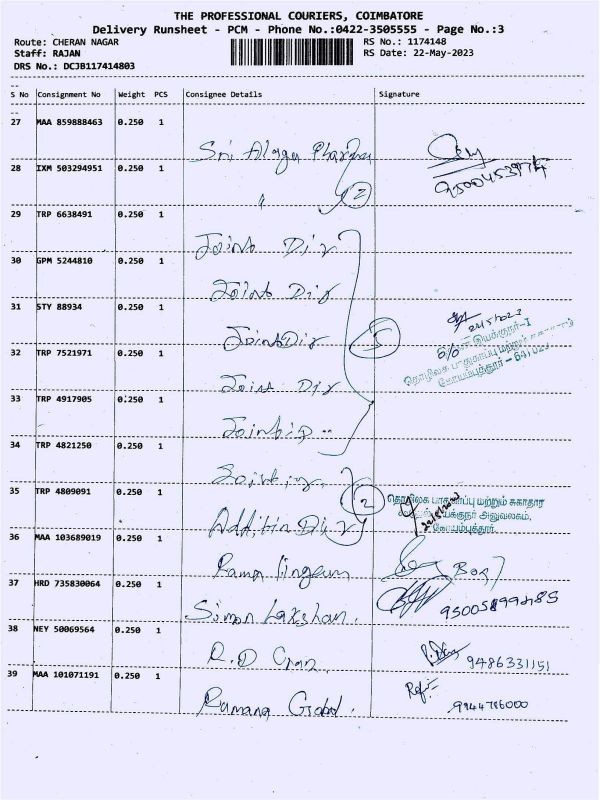 THE PROFESSIONAL COURIERS, COIMBATORE
Delivery Runsheet - PCM - Phone No.:0422-3505555 - Page No.:3
Route: CHERAN NAGAR RS No.: 1174148
Staff: RAJAN RS Date: 22-May-2023
DRS No.: DCJB117414803
S No Consignment No Weight PCS Consignee Details Signature
27 MAA 859888463 0.250 1
Sri Alagu Pharma
28 IXM 503294951 0.250 1
" 2
29 TRP 6638491 0.250 1
Joint Dir
30 GPM 5244810 0.250 1
Joint Dir
31 STY 88934 0.250 1
Joint Dir 5
32 TRP 7521971 0.250 1
Joint Dir
தொழிலக பாதுகாப்பு மற்றும்
கோயம்புத்தூர் - 641023
33 TRP 4917905 0.250 1
34 TRP 4821250 0.250 1
35 TRP 4809091 0.250 1
2 தொழிலக பாதுகாப்பு மற்றும் சுகாதார
இயக்குநர் அலுவலகம்,
கோயம்புத்தூர்.
36 MAA 103689019 0.250 1
Rama lingam
37 HRD 735830064 0.250 1
Simon Laxshan.
38 NEY 50069564 0.250 1
R.D 9486331151
39 MAA 101071191 0.250 1
Ramana Global. 9944786000